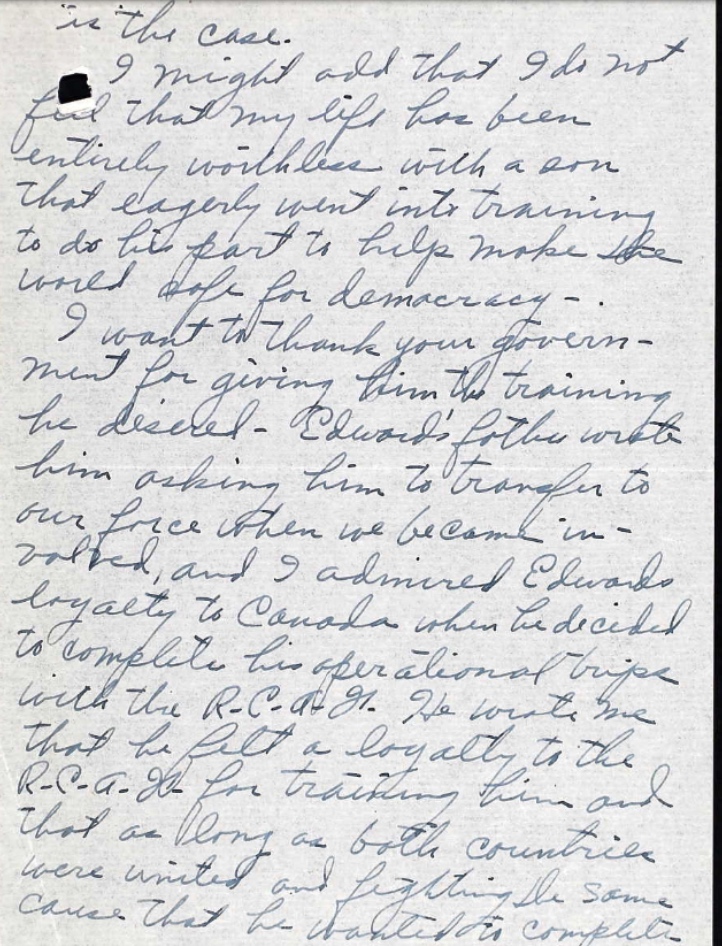 is the case.
I might add that I do not
feel that my life has been
entirely worthless with a son
that eagerly went into training
to do his part to help make the
world safe for democracy-.
I want to thank your govern-
ment for giving him the training
he desired- Edward's father wrote
him asking him to transfer to
our force when we became in-
volved, and I admired Edwards
loyalty to Canada when he decided
to complete his operational trips
with the R-C-A-F. He wrote me
that he felt a loyalty to the
R-C-A-F- for training him and
that as long as both countries
were united and fighting the same
cause that he wanted to complete